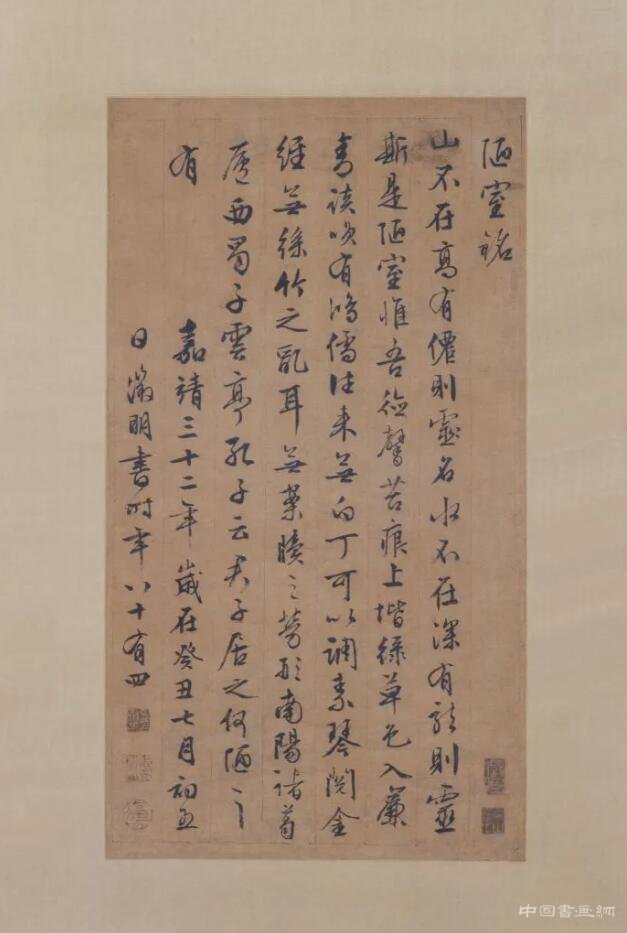 陋室銘
山不在髙有僊則靈名水不在深有龍則靈
斯是陋室惟吾德馨苔痕上堦綠草色入簾
青談咲有鴻儒往来無白丁可以調素琴閲金
經無絲竹之亂耳無案牘之勞形南陽諸葛
廬西蜀子雲亭孔子云君子居之何陋之
有 嘉靖三十二年歲在癸丑七月初五
日徵明書時年八十有四
中国書画網